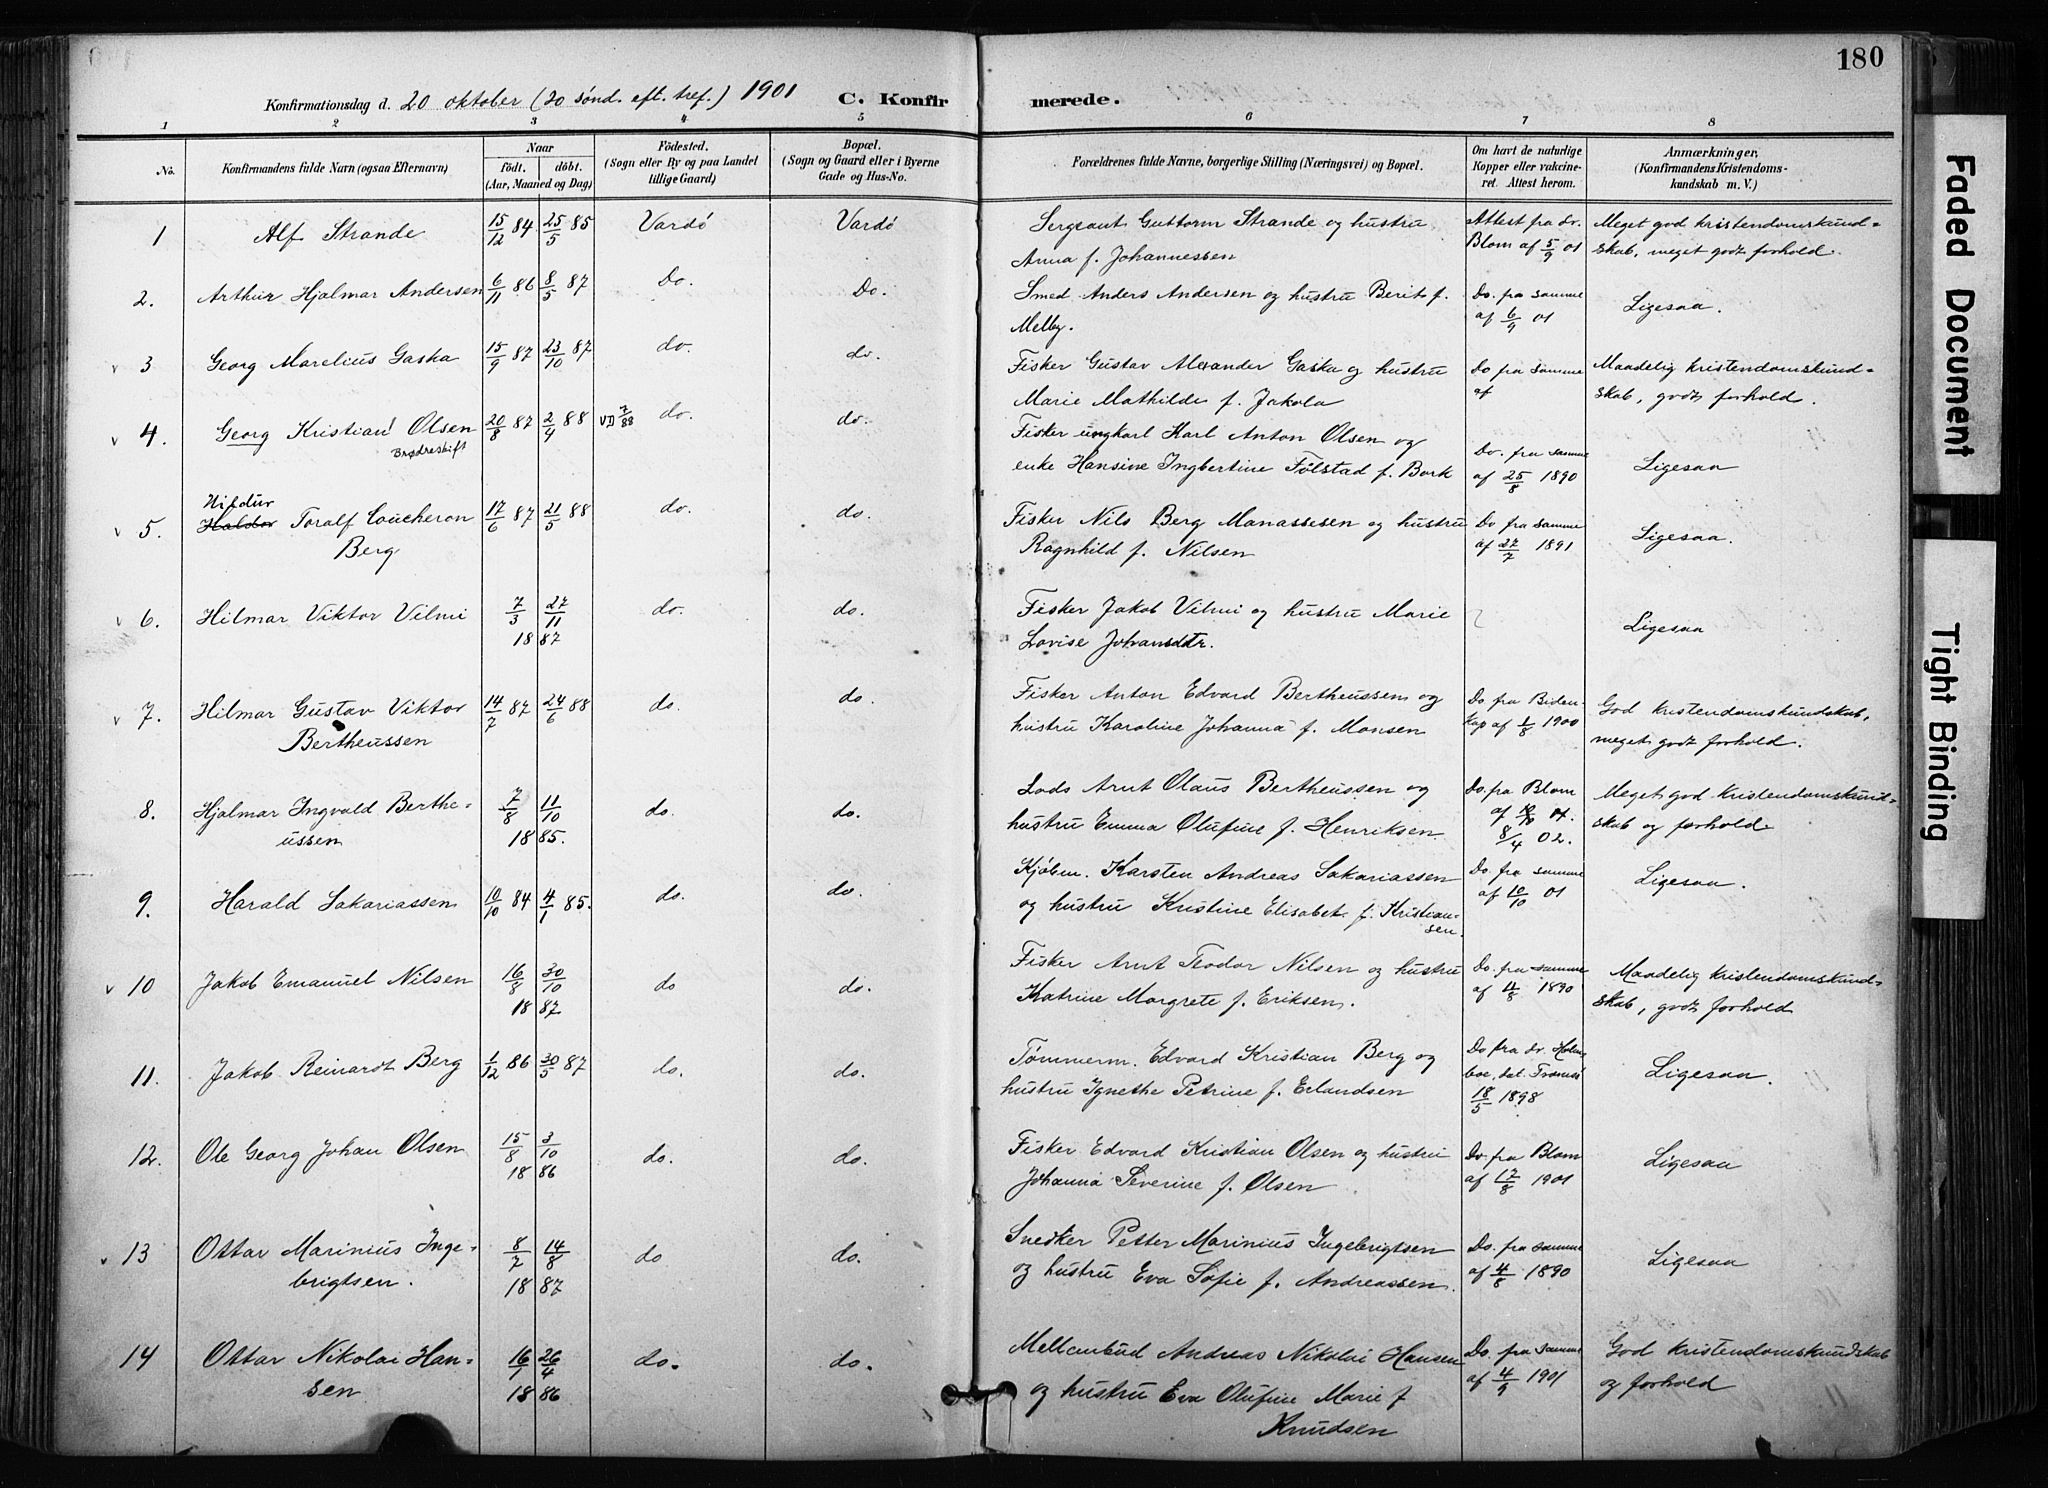 180
Konfirmationsdag d. 20 oktober (20 sönd. eft. tref.) 1901 C. Konfirmerede.
1 2 3 4 5 6 7 8
No. Konfirmandens fulde Navn (ogsaa Efternavn) Naar födt. döbt. (Aar, Maaned og Dag) Födested. (Sogn eller By og paa Landet tillige Gaard) Bopæl. (Sogn og Gaard eller i Byerne Gade og Hus-No. Forældrenes fulde Navne, borgerlige Stilling (Næringsvei) og Bopæl. Om havt de naturlige Kopper eller vakcineret. Attest herom. Anmærkninger, (Konfirmandens Kristendomskundskab m. V.)
1 Alf Strande 15/12 84 25/5 85 Vardö Vardö Sergeant Guttorm Strande og hustru Attest fra dr. Meget god kristendomskund=
Anna f. Johannessen Blom af 5/9 01 skab, meget godt forhold.
2. Arthur Hjalmar Andersen 6/11 86 8/5 87 Do. Do. Smed Anders Andersen og hustru Berit f. Do. fra samme Ligesaa.
Melby. af 6/9 01
v 3 Georg Marelius Gaska 15/9 87 23/10 87 do. do. Fisker Gustav Alexander Gaska og hustru Do fra samme Maadelig kristendomskund=
Marie Mathilde f. Jakola af skab, godt forhold.
v 4. Georg Kristian Olsen 20/8 87 2/4 88 VD 7/88 do. do. Fisker ungkarl Karl Anton Olsen og Do. fra samme Ligesaa
Brødreskift enke Hansine Ingbertine Følstad f. Bork af 25/8 1890
Hildur
v 5. Haldor Toralf Coucheron 17/6 87 21/5 88 do. do. Fisker Nils Berg Manassesen og hustru Do fra samme Ligesaa.
Berg Ragnhild f. Nilsen af 27/7 1891
v 6. Hilmar Viktor Vilmi 7/3 27/11 do. do. Fisker Jakob Vilmi og hustru Marie Ligesaa
1887 Lovise Johansdtr.
v 7. Hilmar Gustav Viktor 14/7 87 24/6 88 do. do. Fisker Anton Edvard Bertheussen og Do. fra Biden- God kristendomskundskab,
Bertheussen hustru Karoline Johanna f. Monsen kap af 1/8 1900 meget godt forhold.
8. Hjalmar Ingvald Berthe= 7/8 11/10 do. do. Lods Arnt Olaus Bertheussen og Do. fra Blom Meget god kristendomskund=
ussen 1885. hustru Emma Olufine f. Henriksen af 8/4 02. skab og forhold
9. Harald Sakariassen 10/10 84 4/1 85. do. do. Kjøbm. Karsten Andreas Sakariassen Do. fra samme Ligesaa.
og hustru Kristine Elisabet f. Kristian- af 10/10 01
sen.
v 10 Jakob Emanuel Nilsen 16/8 30/10 do do. Fisker Arnt Teodor Nilsen og hustru Do. fra samme Maadelig kristendomskund=
1887 Katrine Margrete f. Eriksen. af 11/8 1890 skab, godt forhold
11. Jakob Reinardt Berg 1/12 86 30/5 87 do. do. Tømmerm. Edvard Kristian Berg og Do fra dr. Holm Ligesaa.
hustru Ignethe Petrine f. Erlandsen boe, dat. Tromsø
18/5 1898
12. Ole Georg Johan Olsen 15/8 3/10 do. do. Fisker Edvard Kristian Olsen og hustru Do. fra Blom Ligesaa
1886 Johanna Severine f. Olsen af 17/8 1901
v 13 Ottar Marinius Inge= 8/7 14/8 do do. Snedker Petter Marinius Ingebrigtsen Do. fra samme Ligesaa
brigtsen. 1887 og hustru Eva Sofie f. Andreassen. af 4/8 1890
14 Ottar Nikolai Han= 16/1 26/4 do. do. Andreas Nikolai Hansen Do. fra samme God kristendomskundskab
sen 1886 og hustru Eva Olufine Marie f af 4/9 1901 og forhold
Knudsen
Faded Document
Tight Binding